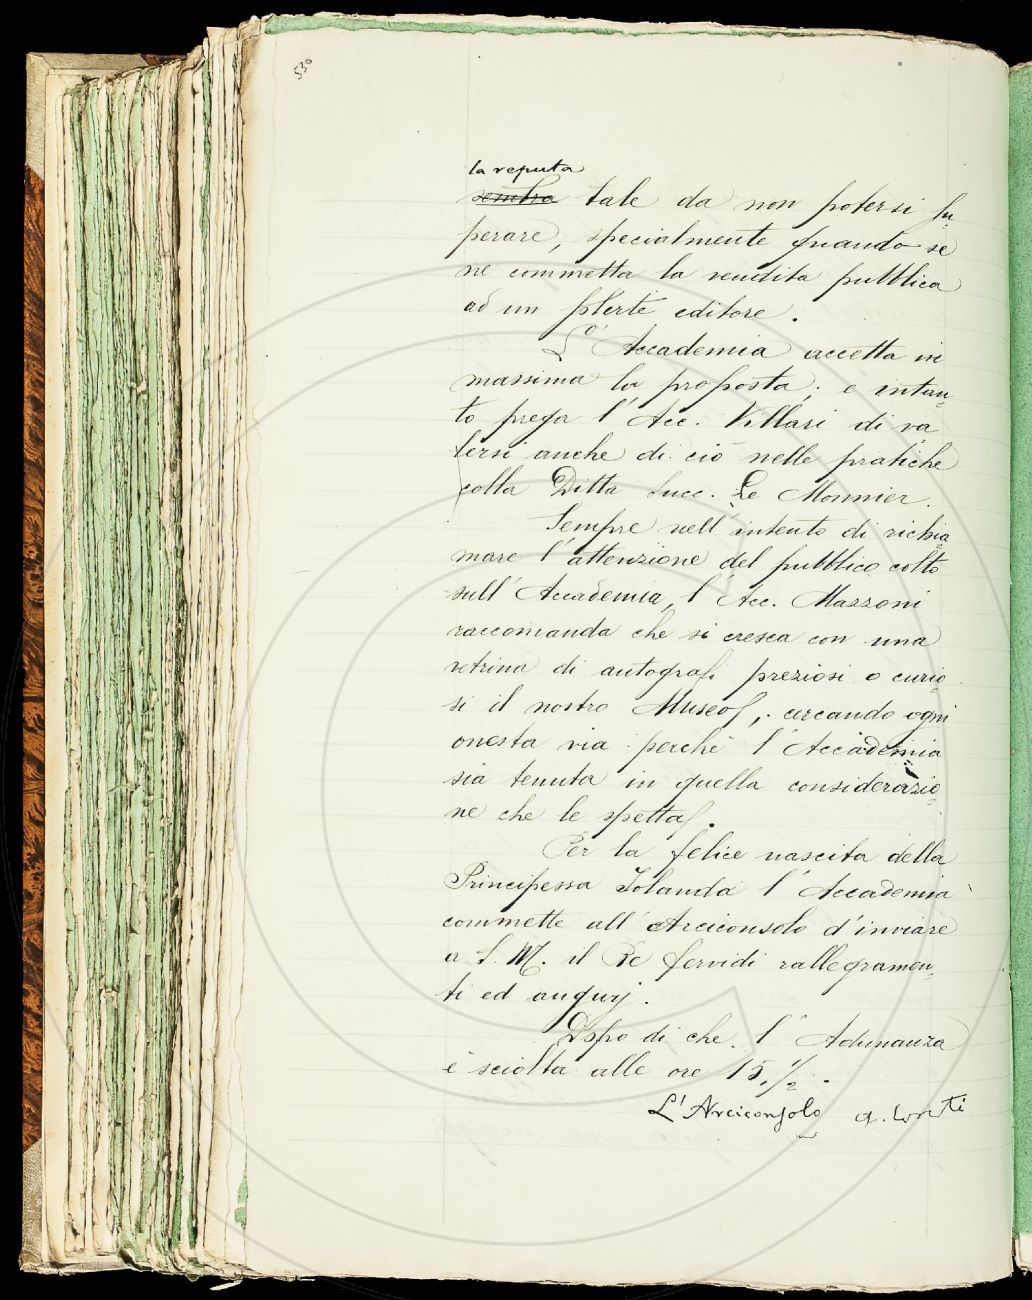 530
la reputa
sembra tale da non potersi su
perare, specialmente quando se
ne commetta la vendita pubblica
ad un solerte editore.
L'Accademia accetta in
massima la proposta; e intan-
to prega l'Acc. Villari di va
lersi anche di ciò nelle pratiche
colla Ditta Succ. Le Monnier.
Sempre nell'intento di richia-
mare l'attenzione del pubblico colto
sull'Accademia, l'Acc. Mazzoni
raccomanda che si cresca con una
vetrina di autografi preziosi o curio-
si il nostro Museo, cercando ogni
onesta via perchè l'Accademia
sia tenuta in quella considerazio-
ne che le spetta.
Per la felice nascita della
Principessa Iolanda l'Accademia
commette all'Arciconsolo d'inviare
a S. M. il Re fervidi rallegramen-
ti ed augurj.
Dopo di che l'Adunanza
è sciolta alle ore 15 1/2.
L'Arciconsolo A. Conti